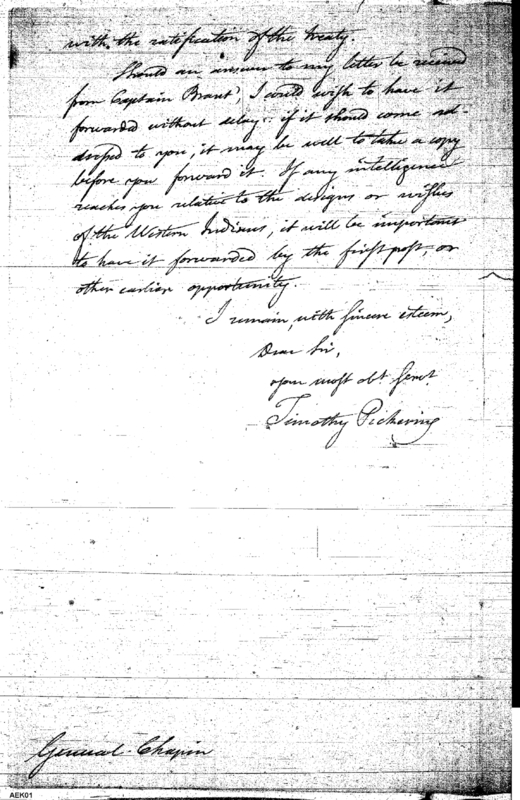 with the ratification of the treaty.
Should an answer to my letter be received
from Captain Brant, I could wish to have it
forwarded without delay: if it should come ad
dressed to you, it may be well to take a copy
before you forward it. If any intelligence
reaches you relative to the designs or wishes
of the Western Indians, it will be important
to have it forwarded by the first post, or
other earlier opportunity.
I remain, with sincere esteem,
Dear Sir,
your most obt Servt
Timothy Pickering
General Chapin
AEK01